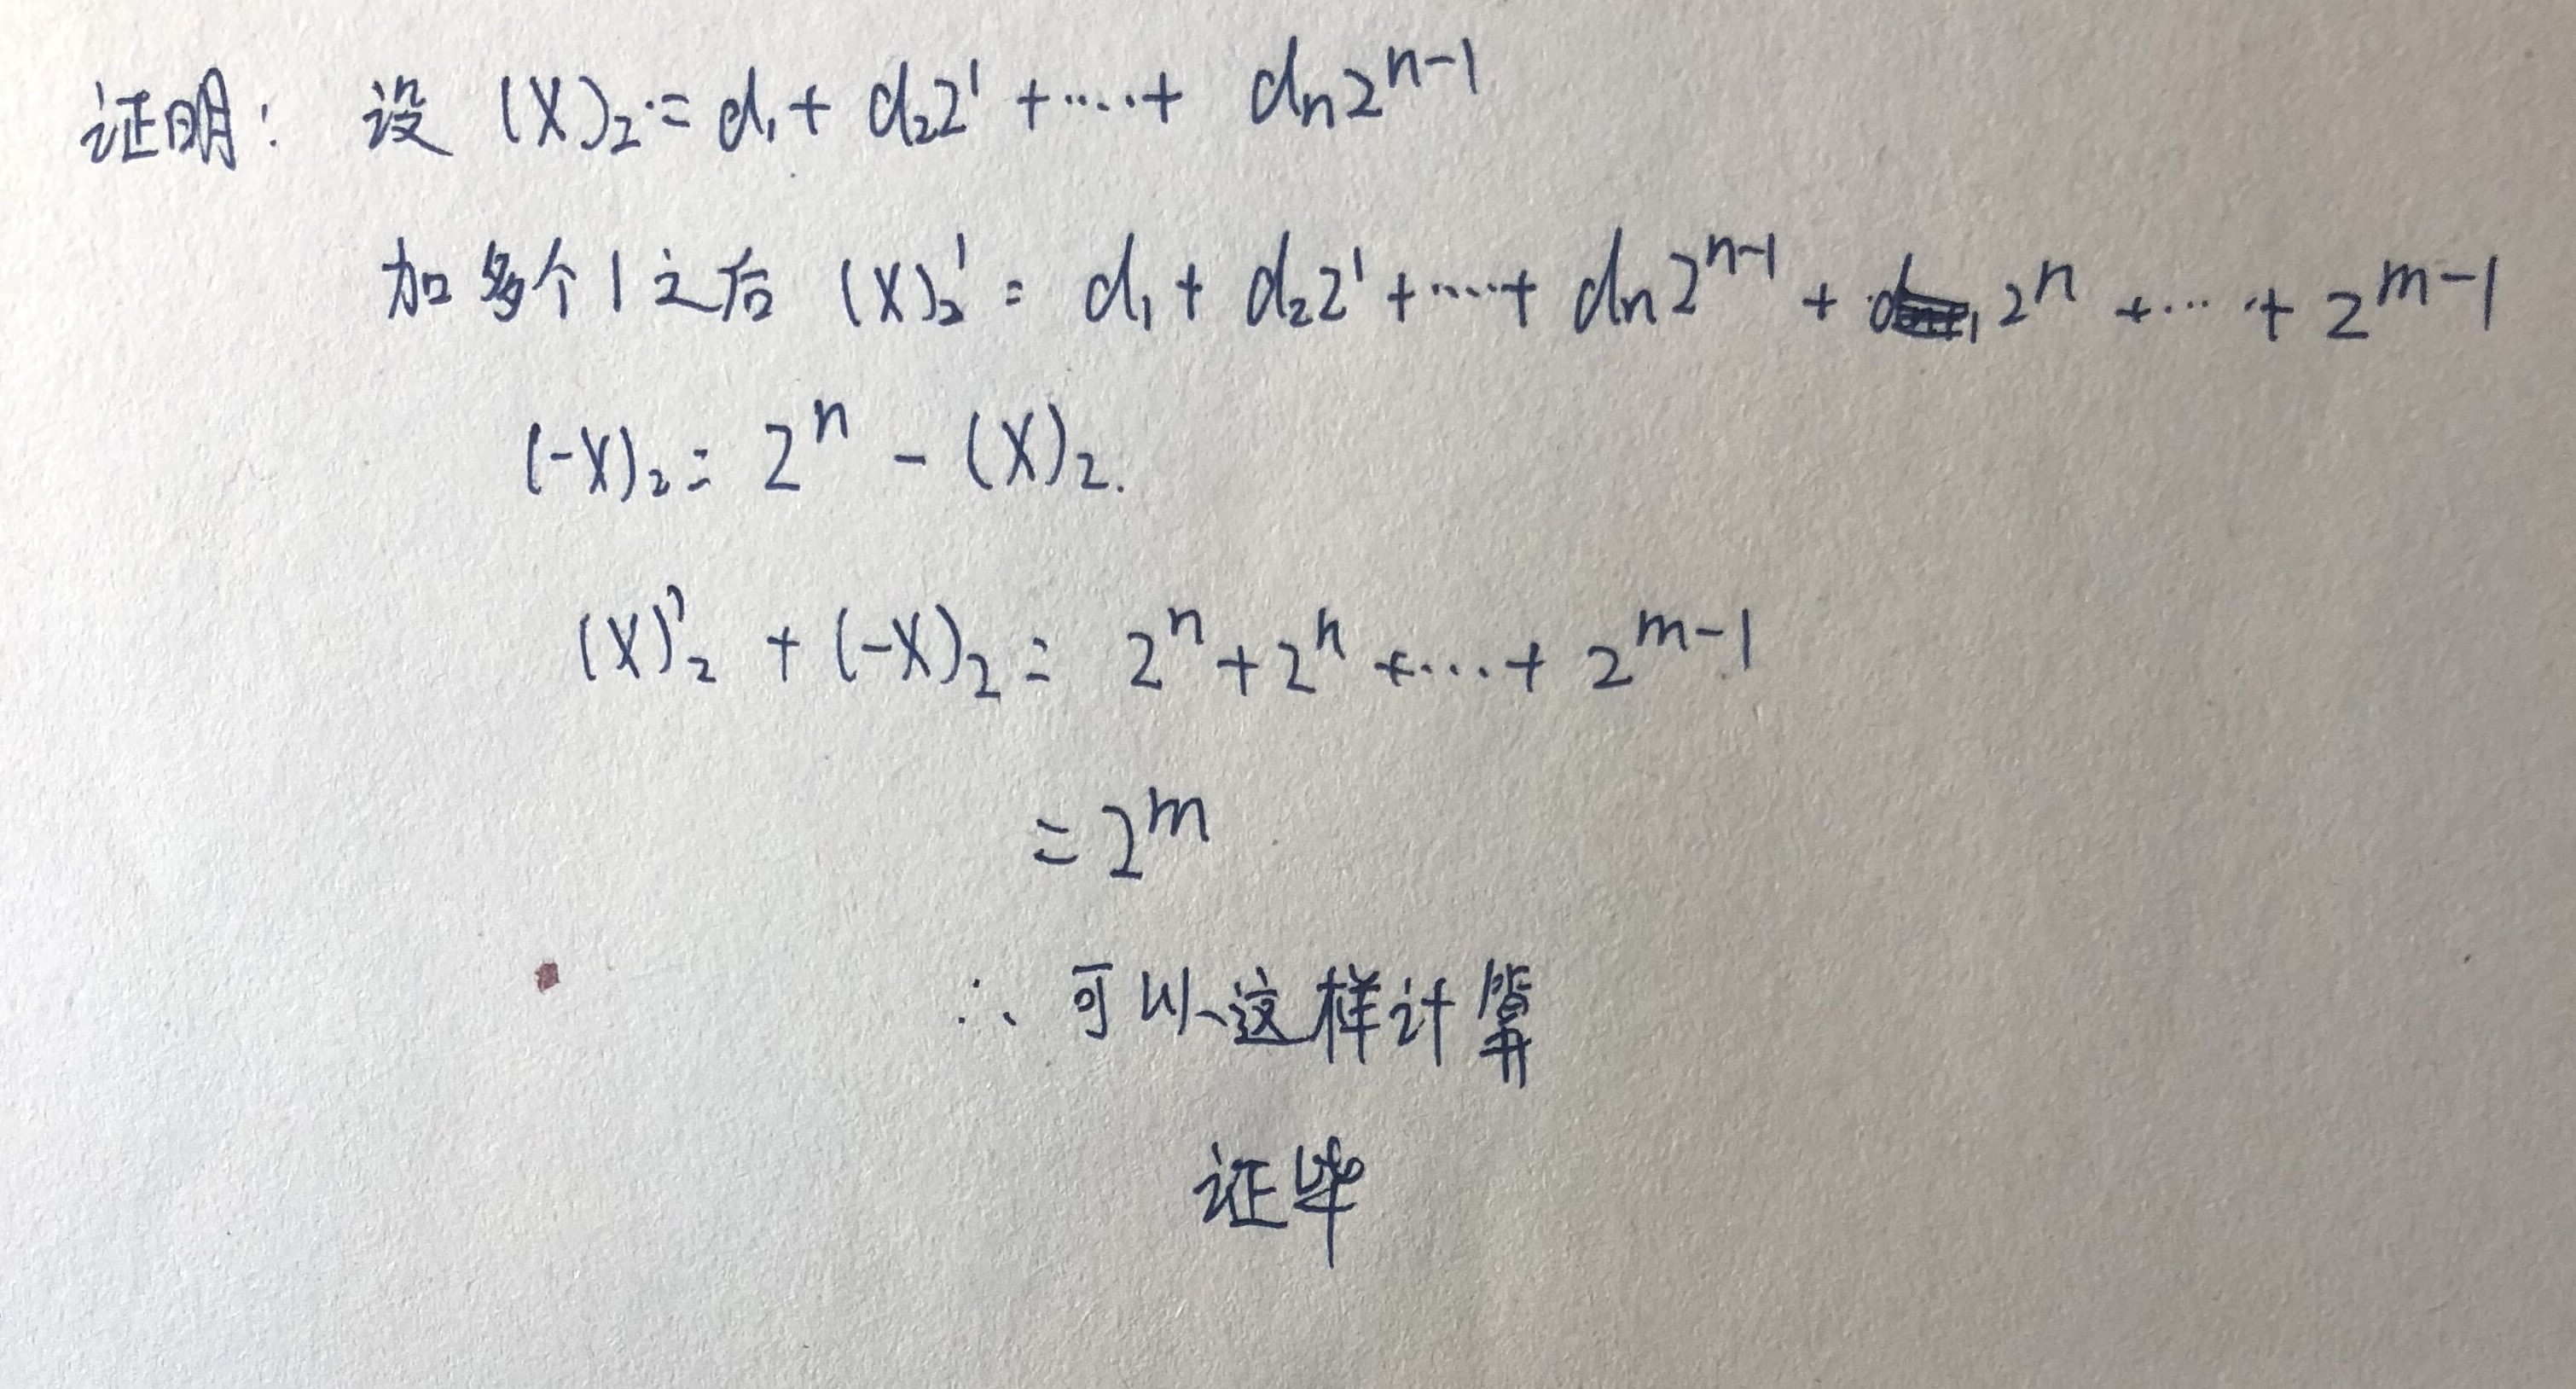 证明： 设 (X)₂ = d₁ + d₂2¹ + ····· + dn2ⁿ⁻¹
加多个1之后 (X)₂' = d₁ + d₂2¹ + ····· + dn2ⁿ⁻¹ + 2ⁿ + ··· + 2ᵐ⁻¹
(-X)₂ = 2ⁿ - (X)₂.
(X)'₂ + (-X)₂ = 2ⁿ + 2ⁿ + ···· + 2ᵐ⁻¹
= 2ᵐ
∴ 可以这样计算
证毕